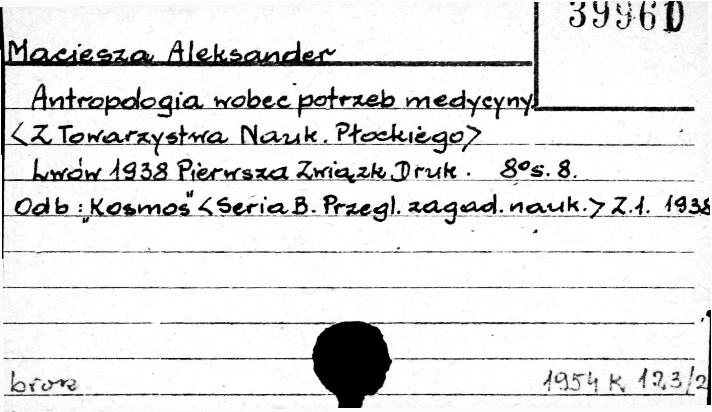 39961
Maciesza Aleksander
Antropologia wobec potrzeb medycyny.
<Z Towarzystwa Nauk. Płockiego>
Lwów 1938 Pierwsza Związk. Druk. 8° s. 8.
Odb: „Kosmos" <Seria B. Przegl. zagad. nauk.> Z.1. 1938
brosz
1954 K 123/2